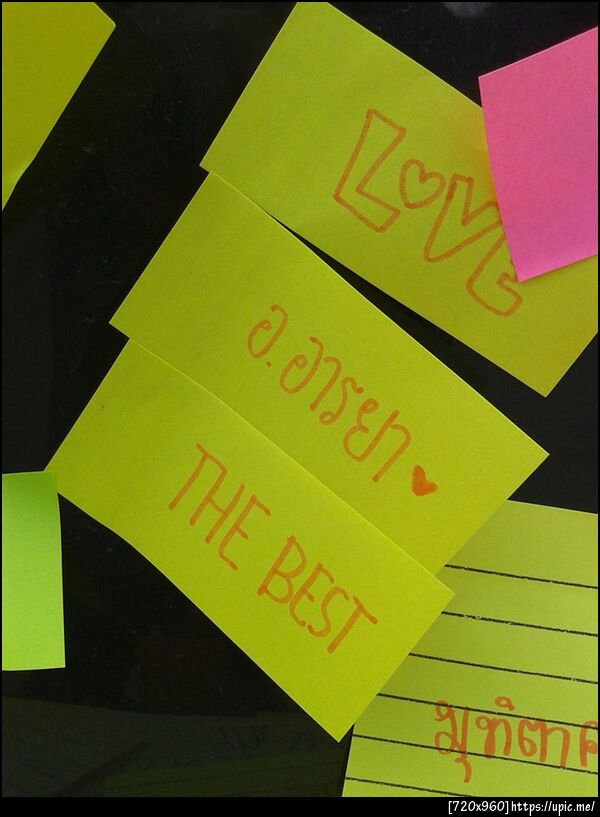 LOVE
อ.อารยา
THE BEST
มุทิตา
[720x960] https://upic.me/